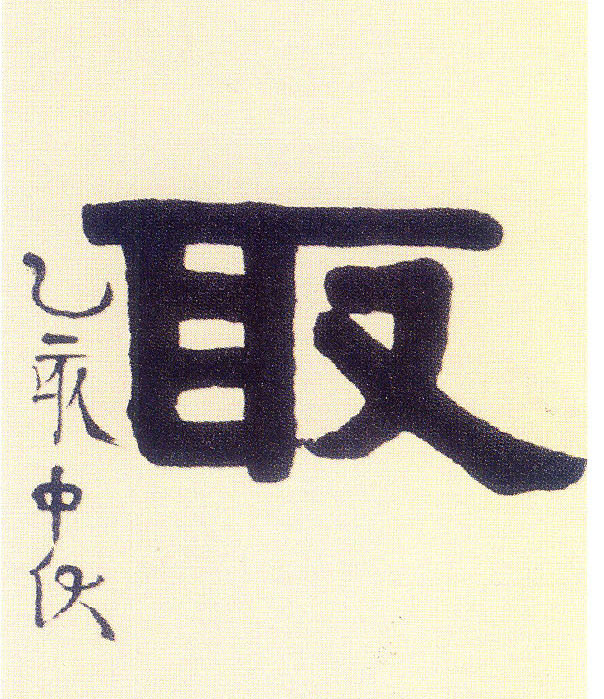 取
乙亥中伏